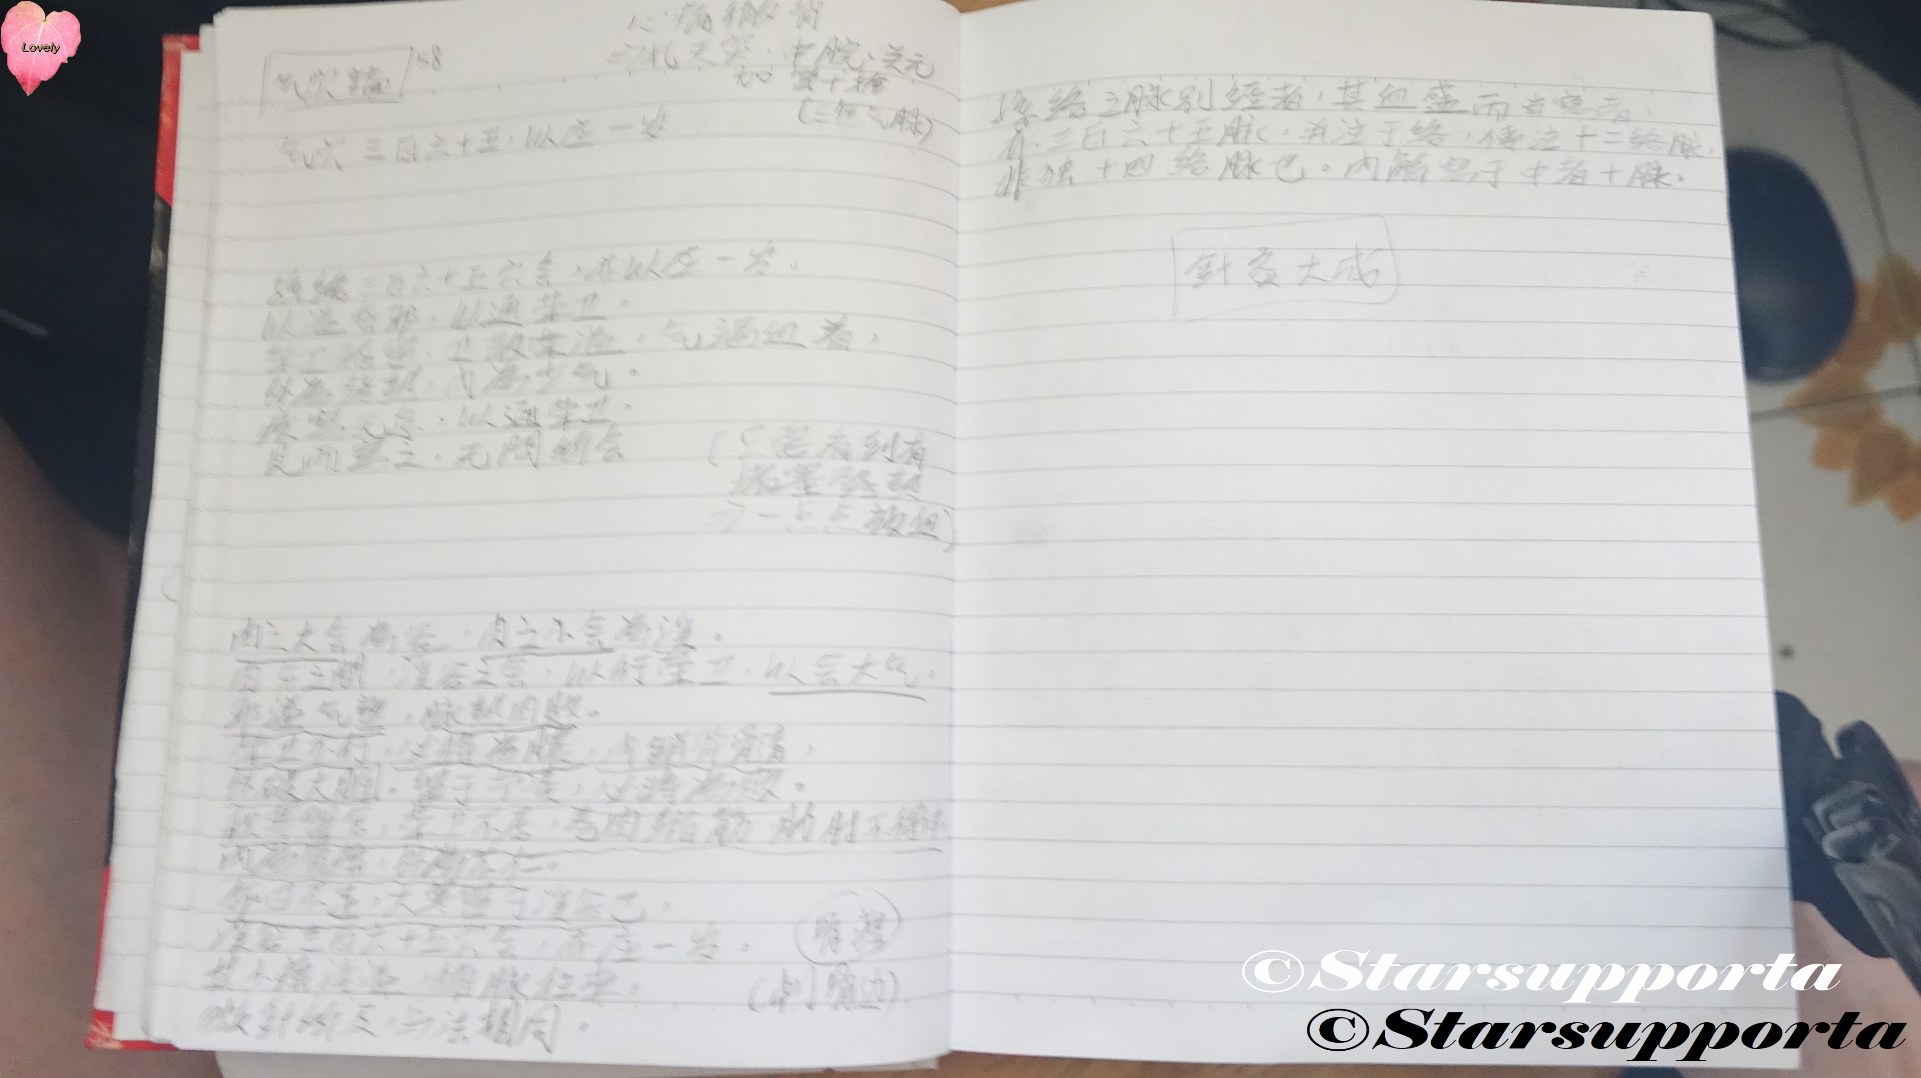 Lovely
气穴論 58
心痛徹背
→扎天突、中脘、关元
(三焦气脉)
气穴三百六十五,以应一岁
孫絡三百六十五穴会,亦以应一岁。
以溢奇邪,以通荣卫。
卫散荣溢,气竭血着,
外為发热,内為少气。
以通荣卫。
見而瀉之,无問所会
(只要看到有
→一点点放血)
肉之大会為谷,肉之小会為溪。
肉分之間,溪谷之会,以行荣卫,以会大气。
邪溢气壅,脉热肉败。
荣卫不行,必將為膿,内銷骨髓,
外破大膕。留于节凑,必將為败。
积寒留舍,荣卫不居,卷肉缩筋 肋肘不得伸
内為骨痹,外為不仁。
命曰不足,大寒留于溪谷也。
溪谷三百六十五穴会,亦应一岁。
其小痹淫溢,循脉往来。
微針所及,与法相同。
骨
(刺骨边)
孫絡之脉别經者,其血盛而当瀉者,
亦三百六十五脉,并注于絡,传注十二絡脉,
非独十四絡脉也。内解瀉于中者十脉。
針灸大成
©Starsupporta
©Starsupporta